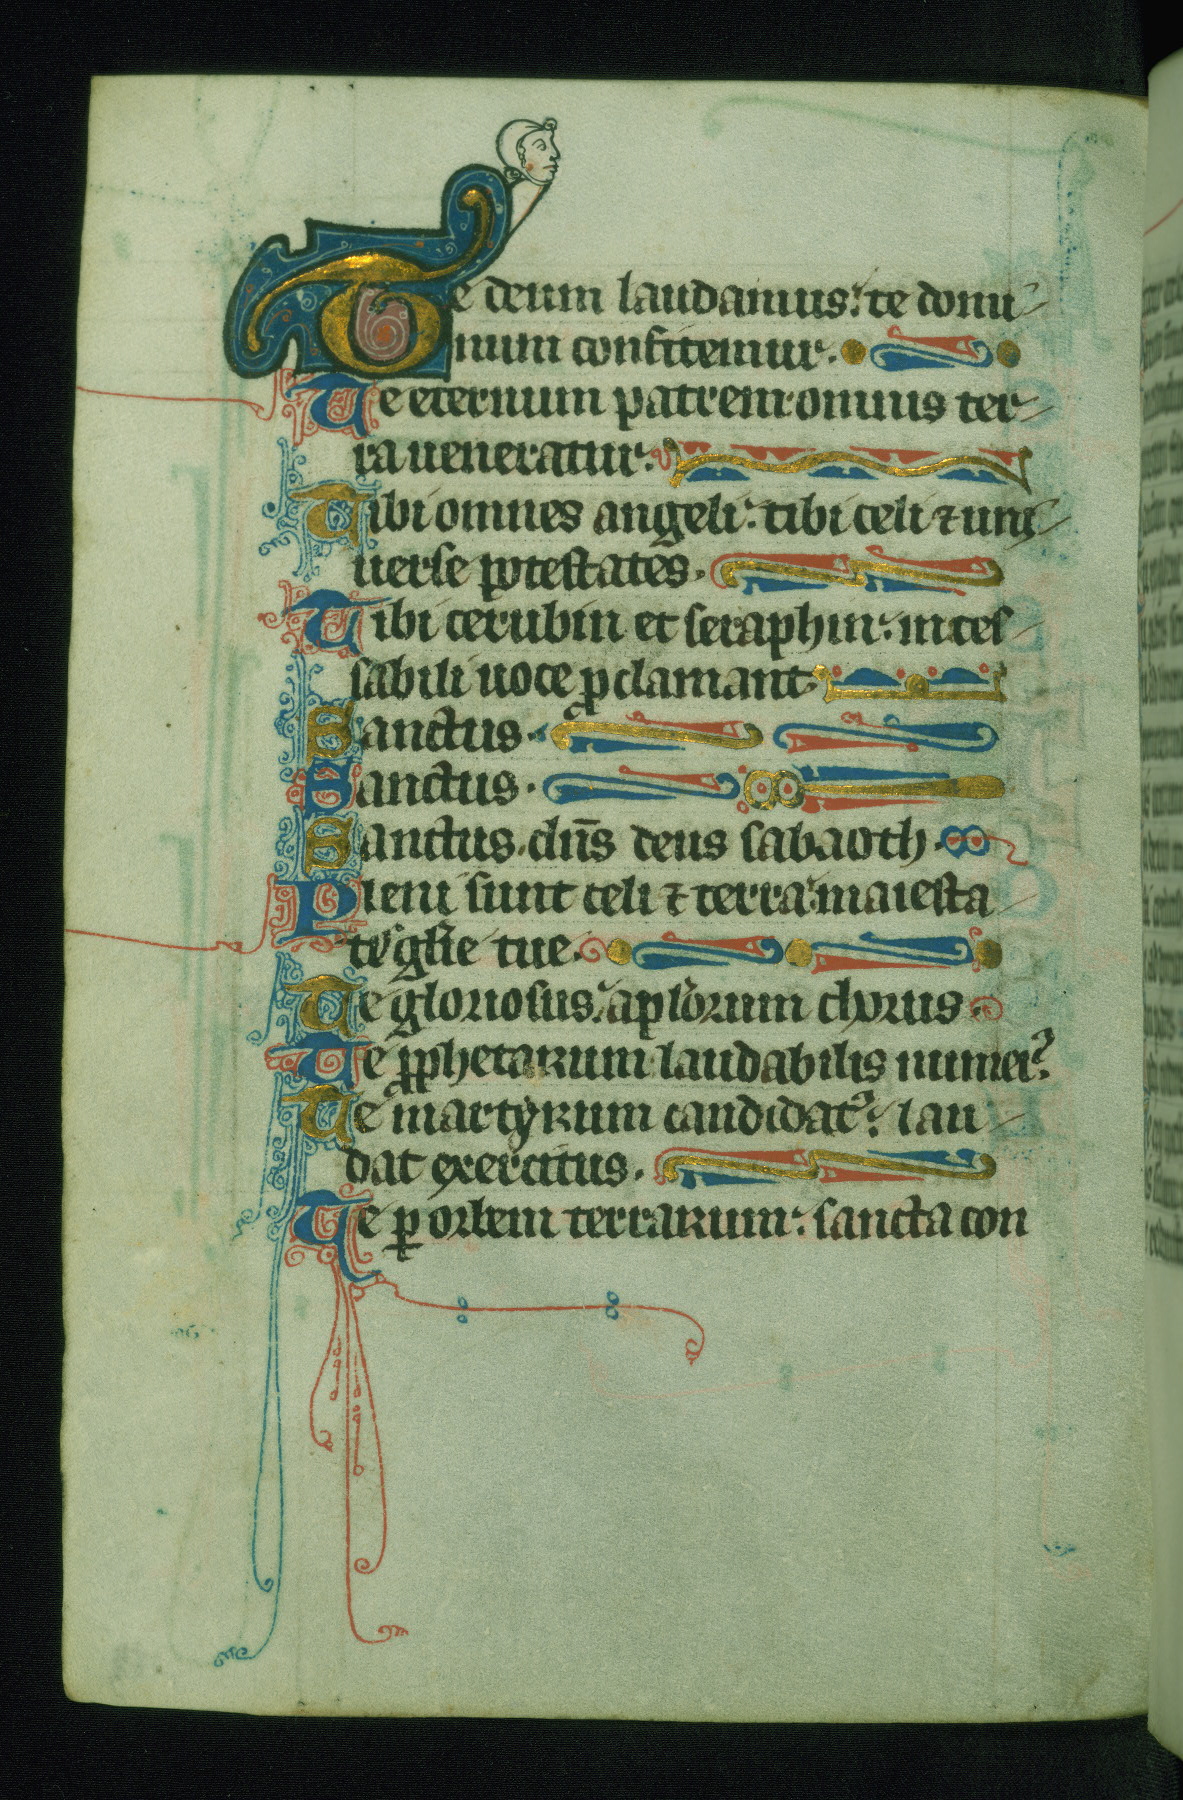 Te deum laudamus: te domi
num confitemur.
Te eternum patrem: omnis ter
ra ueneratur.
Tibi omnes angeli: tibi celi ⁊ uni
uerse potestates.
Tibi cerubin et seraphin: inces
sabili uoce ꝓclamant.
Sanctus.
Sanctus.
Sanctus. dn̄s deus sabaoth.
Pleni sunt celi ⁊ terra: maiesta
tꝭ gl̄ie tue.
Te gloriosus: apl̄orum chorus.
Te ꝓphetarum laudabilis numerꝰ.
Te martyrum candidatꝰ: lau
dat exercitus.
Te ꝑ orbem terrarum: sancta con